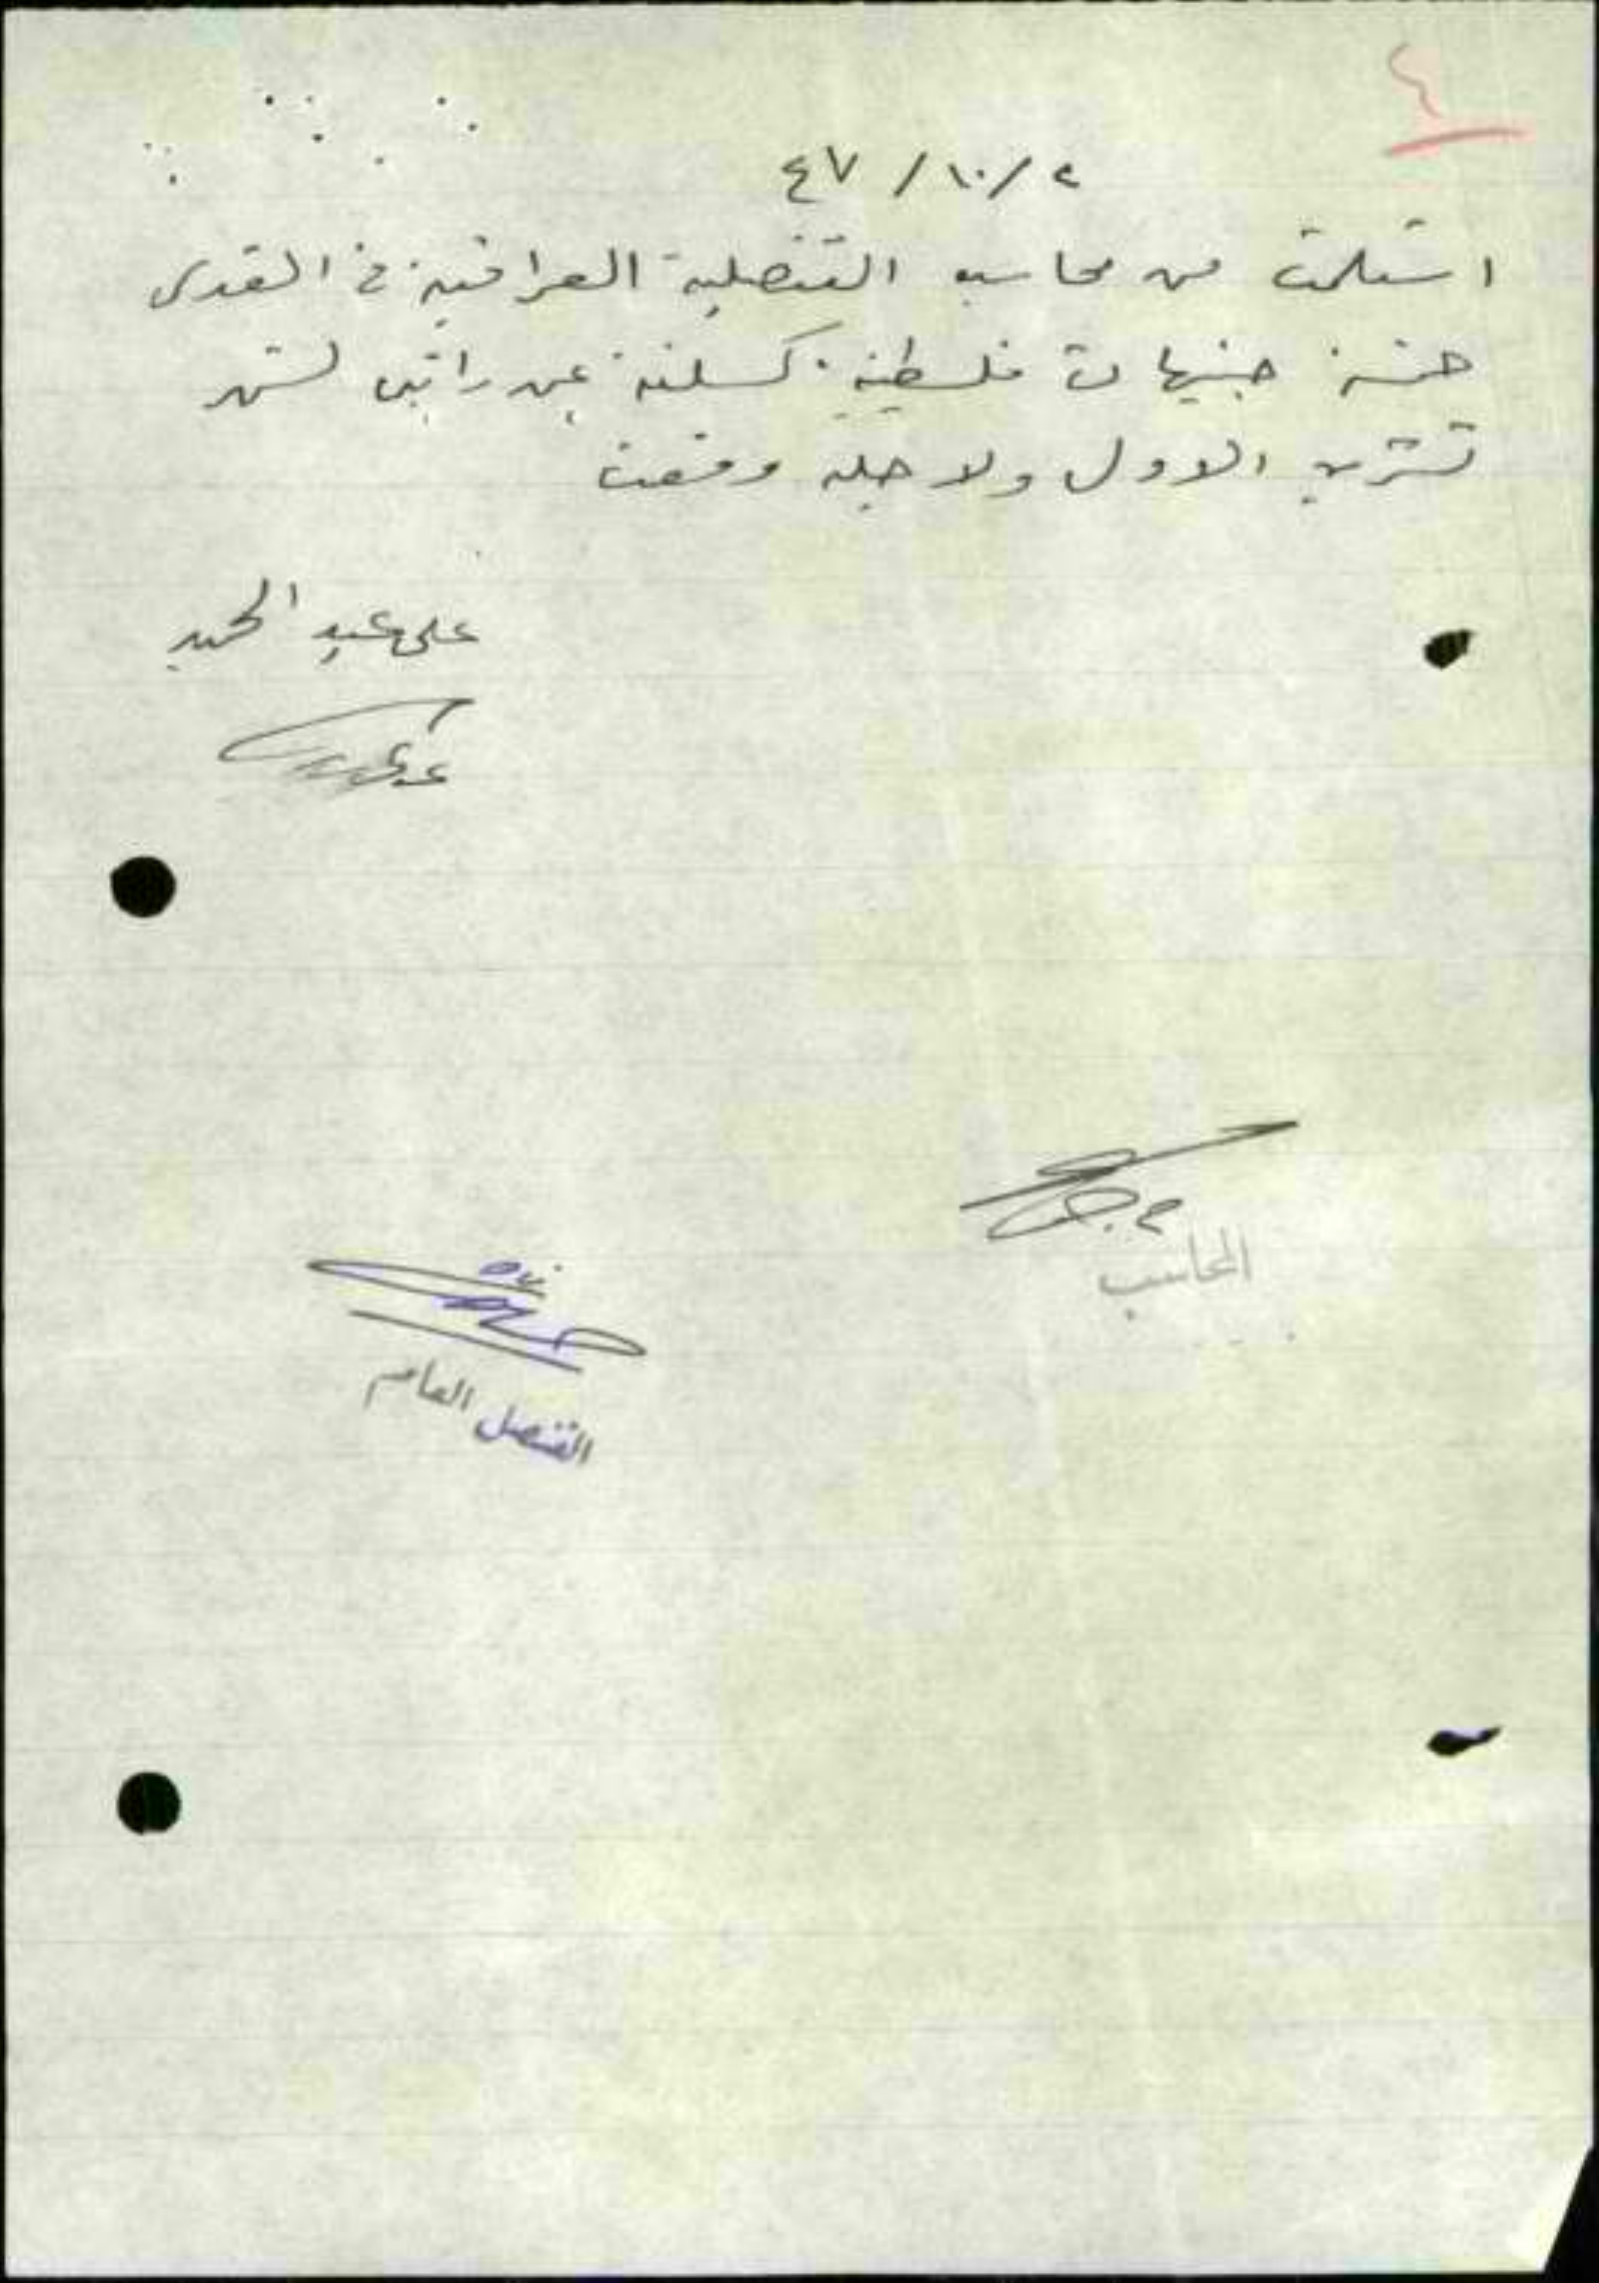 ٤
٢/١٠/٤٧
استلمت من محاسب القنصلية العراقية في القدس
خمسة جنيهات فلسطينية كسلفة عن راتبي لشهر
تشرين الاول ولاجله وقعت
علي عبد الحميد
المحاسب
القنصل العام